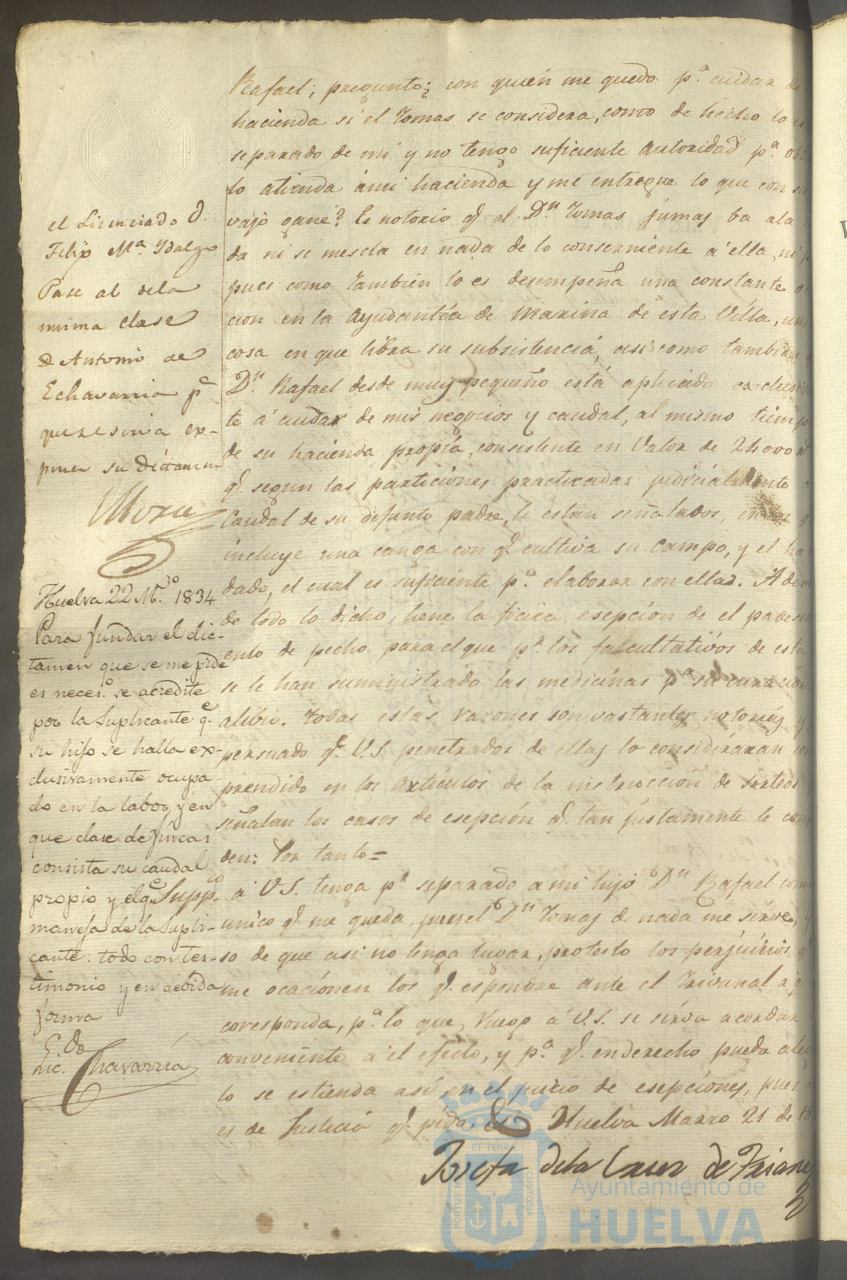 Rafael; pregunto; con quien me quedo pª cuidar de
hacienda si el Tomas se considera, como de hecho lo es
separado de mi y no tengo suficiente autoridad pª
lo atienda á mi hacienda y me entregue lo que con su
vajo gane? Es notorio q.e el D.n Tomas jamas ba a la
da ni se mescla en nada de lo conserniente a' ella, ni
pues como tambien lo es desempeña una constante
cion en la Ayudantía de Marina de esta Villa, uni
cosa en que libra su subsistencia, asi como tambien
D.n Rafael desde muy pequeño está aplicado exclusiv
te á cuidar de mis negocios y caudal, al mismo tiemp
de su hacienda propia, consistente en Valor de 24000
q.e segun las particiones practicadas judicialmente
caudal de su difunto padre, le estan señalados, en
incluye una canga con q.e cultiva su campo, y el
dado, el cual es suficiente pª elaborar con ellas. Adem
de todo lo dicho, tiene la ficica esepcion de el padesi
ento de pecho para el que pr los facultativos de esta
se le han suministrado las medicinas pª su curacion
alibio. Todas estas razones son vastantes notorias y
persuado q.e V.S. penetrados de ellas lo considerarán
prendido en los artículos de la instruccion de sorteos
señalan los casos de esepción q.e tan justamente le
den: Por tanto=
Supp.co á V.S. tenga pr separado a mi hijo D.n Rafael com
unico q.e me queda, pues el D.n Tomas de nada me sirve, y
so de que asi no tenga lugar, protesto los perjuicios q
me ocacionen los q.e espondre ante el Trivunal a q
coresponda, pª lo que, ruego á V.S. se sirva acordar
conveniente á el efecto, y pª q.e en derecho pueda
lo se estienda asi en el juicio de esepciones, pues
es de Justicia q.e pido, &c Huelva Marzo 21 de 18
Josefa de la Cruz de Triane
el Licenciado D.
Felix Mª Ydalgo
Pase al de la
misma clase
D Antonio de
Echavarria pª
que se sirva ex-
poner su dictamen
Mora
Huelva 22 M.zo 1834
Para fundar el dic-
tamen que se me pide
es neces.o se acredite
por la Suplicante q.e
su hijo se halla ex-
clusivamente ocupa
do en la labor, y en
que clase de fincas
consista su caudal
propio y el q.e
maneja de la Supli-
cante: todo con tes-
timonio y en debida
forma
Lic.do Chavarría
ET TERRÆ
PORTUS
CUSTODIA
Ayuntamiento de
HUELVA